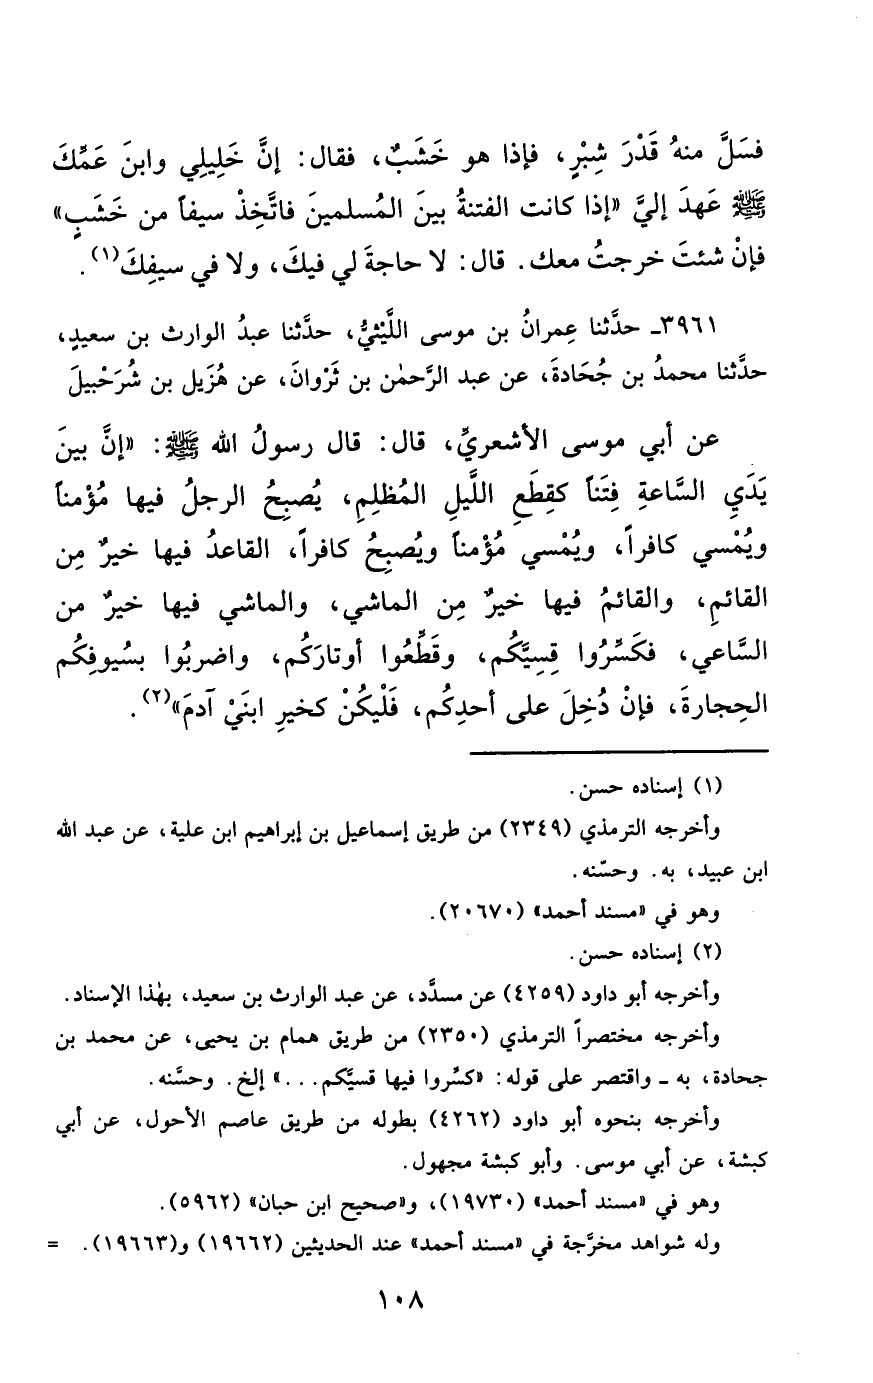 فسَلَّ منهُ قَدْرَ شِبْرٍ، فإذا هو خَشَبٌ، فقال: إنَّ خَلِيلِي وابنَ عَمِّكَ
ﷺ عَهدَ إليَّ «إذا كانت الفتنةُ بينَ المُسلمينَ فاتَّخِذْ سيفاً من خَشَبٍ»
فإنْ شئتَ خرجتُ معك. قال: لا حاجةَ لي فيكَ، ولا في سيفِكَ(١).
٣٩٦١ـ حدَّثنا عِمرانُ بن موسى اللَّيْثيُّ، حدَّثنا عبدُ الوارث بن سعيدٍ،
حدَّثنا محمدُ بن جُحَادةَ، عن عبد الرَّحمٰن بن ثَرْوانَ، عن هُزَيل بن شُرَحْبيلَ
عن أبي موسى الأشعريِّ، قال: قال رسولُ الله ﷺ: «إنَّ بينَ
يَدَيِ السَّاعةِ فِتَناً كقِطَعِ اللَّيلِ المُظلِمِ، يُصبِحُ الرجلُ فيها مُؤْمناً
ويُمْسي كافراً، ويُمْسي مُؤْمناً ويُصبِحُ كافراً، القاعدُ فيها خيرٌ مِن
القائمِ، والقائمُ فيها خيرٌ مِن الماشي، والماشي فيها خيرٌ من
السَّاعي، فكَسِّرُوا قِسِيَّكُم، وقَطِّعُوا أوتارَكُم، واضربُوا بسُيوفِكُم
الحِجارةَ، فإنْ دُخِلَ على أحدِكُم، فَلْيكُنْ كخيرِ ابنَيْ آدمَ»(٢).
(١) إسناده حسن.
وأخرجه الترمذي (٢٣٤٩) من طريق إسماعيل بن إبراهيم ابن علية، عن عبد الله
ابن عبيد، به. وحسّنه.
وهو في «مسند أحمد» (٢٠٦٧٠).
(٢) إسناده حسن.
وأخرجه أبو داود (٤٢٥٩) عن مسدَّد، عن عبد الوارث بن سعيد، بهٰذا الإسناد.
وأخرجه مختصراً الترمذي (٢٣٥٠) من طريق همام بن يحيى، عن محمد بن
جحادة، به ـ واقتصر على قوله: «كسِّروا فيها قسيَّكم...» إلخ. وحسَّنه.
وأخرجه بنحوه أبو داود (٤٢٦٢) بطوله من طريق عاصم الأحول، عن أبي
كبشة، عن أبي موسى. وأبو كبشة مجهول.
وهو في «مسند أحمد» (١٩٧٣٠)، و«صحيح ابن حبان» (٥٩٦٢).
وله شواهد مخرَّجة في «مسند أحمد» عند الحديثين (١٩٦٦٢) و(١٩٦٦٣). =
١٠٨